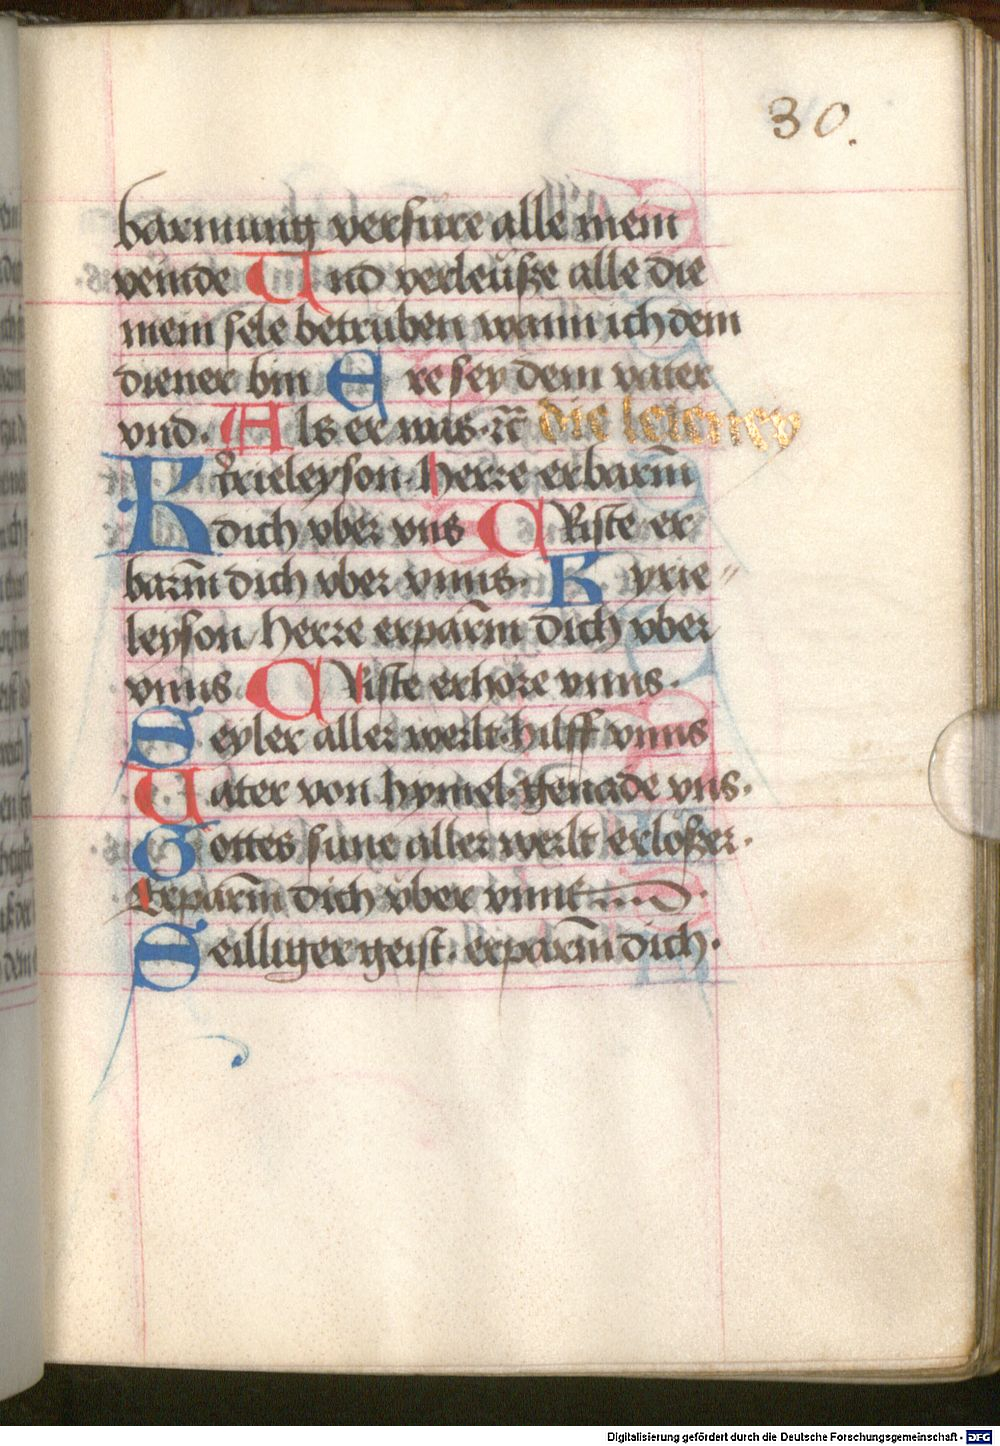 30.
barmung verfüre alle mein
veinde Und verleüße alle die
mein sele betrüben wann ich dem
diener bin Ere sey dem vater
vnd. Als er was ·r̄c die leteney
Kÿrieleyson. herre erbarm̄
dich vber vns CRiste er
barm̄ dich vber vnns. Kyrie〃
leyson herre erparm̄ dich vber
vnns CRiste erhöre vnns.
Seyler aller werlt·hilff vnns
Uater von hymel·genade vns.
Gottes sune aller werlt erlößer.
Erparm̄ dich vber vnns
Seilliger geist. erparm̄ dich.
Digitalisierung gefördert durch die Deutsche Forschungsgemeinschaft - DFG